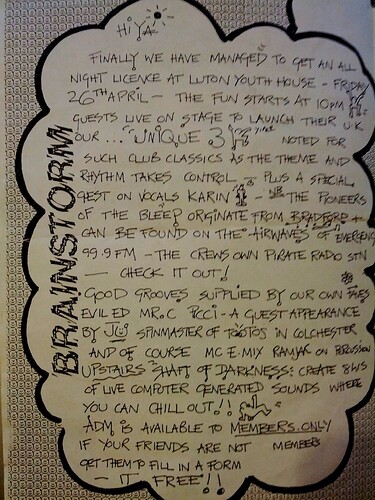 HIYA
FINALLY WE HAVE MANAGED TO GET AN ALL
NIGHT LICENCE AT LUTON YOUTH HOUSE - FRIDAY
26TH APRIL - THE FUN STARTS AT 10PM
GUESTS LIVE ON STAGE TO LAUNCH THEIR U.K
OUR... "UNIQUE 3" NOTED FOR
SUCH CLUB CLASSICS AS THE THEME AND
RHYTHM TAKES CONTROL - PLUS A SPECIAL
GEST ON VOCALS KARIN - THE PIONEERS
OF THE BLEEP ORGINATE FROM BRADFORD +
CAN BE FOUND ON THE AIRWAVES OF EMERGENCY
99.9 FM - THE CREWS OWN PIRATE RADIO STN
- CHECK IT OUT!
GOOD GROOVES SUPPLIED BY OUR OWN FAVES
EVIL ED MR.C PCCI - A GUEST APPEARANCE
BY SPINMASTER OF IN COLCHESTER
AND OF COURSE MC E-MIX RAMJAK ON PERCUSSION
UPSTAIRS "SHAFT OF DARKNESS: CREATE 8HRS
OF LIVE COMPUTER GENERATED SOUNDS WHERE
YOU CAN CHILL OUT!!
ADM IS AVAILABLE TO MEMBERS ONLY
IF YOUR FRIENDS ARE NOT MEMBERS
GET THEM TO FILL IN A FORM
- IT FREE!!
BRAINSTORM